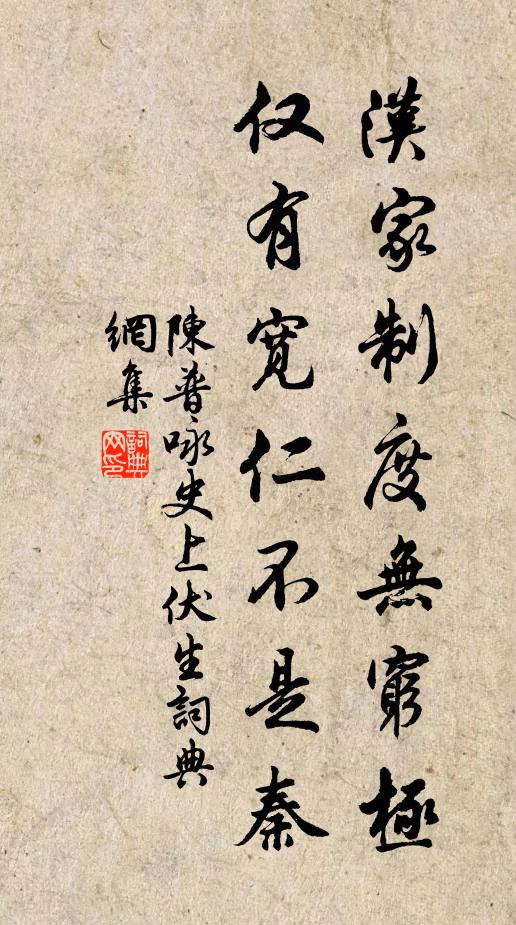 漢家制度無窮極
仅有寬仁不是秦
陳普咏史上伏生詞典
網集
詞典
网印